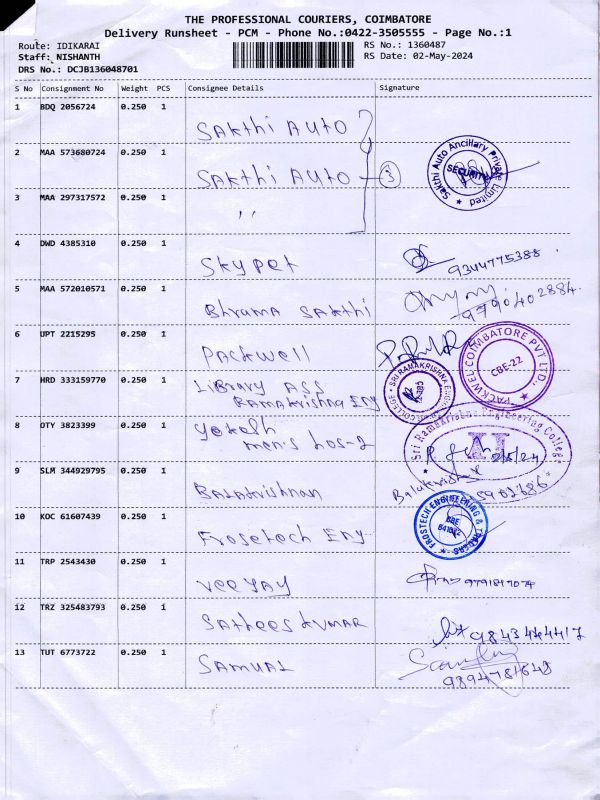 THE PROFESSIONAL COURIERS, COIMBATORE
Delivery Runsheet - PCM - Phone No.:0422-3505555 - Page No.:1
Route: IDIKARAI RS No.: 1360487
Staff: NISHANTH RS Date: 02-May-2024
DRS No.: DCJB136048701
S No Consignment No Weight PCS Consignee Details Signature
1 BDQ 2056724 0.250 1
SAKthi AUTO
2 MAA 573680724 0.250 1
SAKthi AUTO - 3
Sakthi Auto Ancillary Private Limited
SECURITY
3 MAA 297317572 0.250 1
"
4 DWD 4385310 0.250 1
Skypet
9344775388
5 MAA 572010571 0.250 1
Bhrama SAKthi
9790402884
6 UPT 2215295 0.250 1
PAckwell
PACKWEL COIMBATORE PVT LTD.,
CBE-22
7 HRD 333159770 0.250 1
Library ASS
RAMAkrishna Eng
SRI RAMAKRISHNA ENGG COLLEGE
8 OTY 3823399 0.250 1
Yokesh
men's hos-2
Sri Ramakrishna Engineering College
2/5/24
9 SLM 344929795 0.250 1
BALAkrishnan
Balakrishnan
10 KOC 61607439 0.250 1
Frosetech Eng
FROSTECH ENGINEERING & TRADERS
CBE
641022
11 TRP 2543430 0.250 1
VEEJAY
12 TRZ 325483793 0.250 1
SAtheesKUMAR
13 TUT 6773722 0.250 1
SAMUAL
9894781648